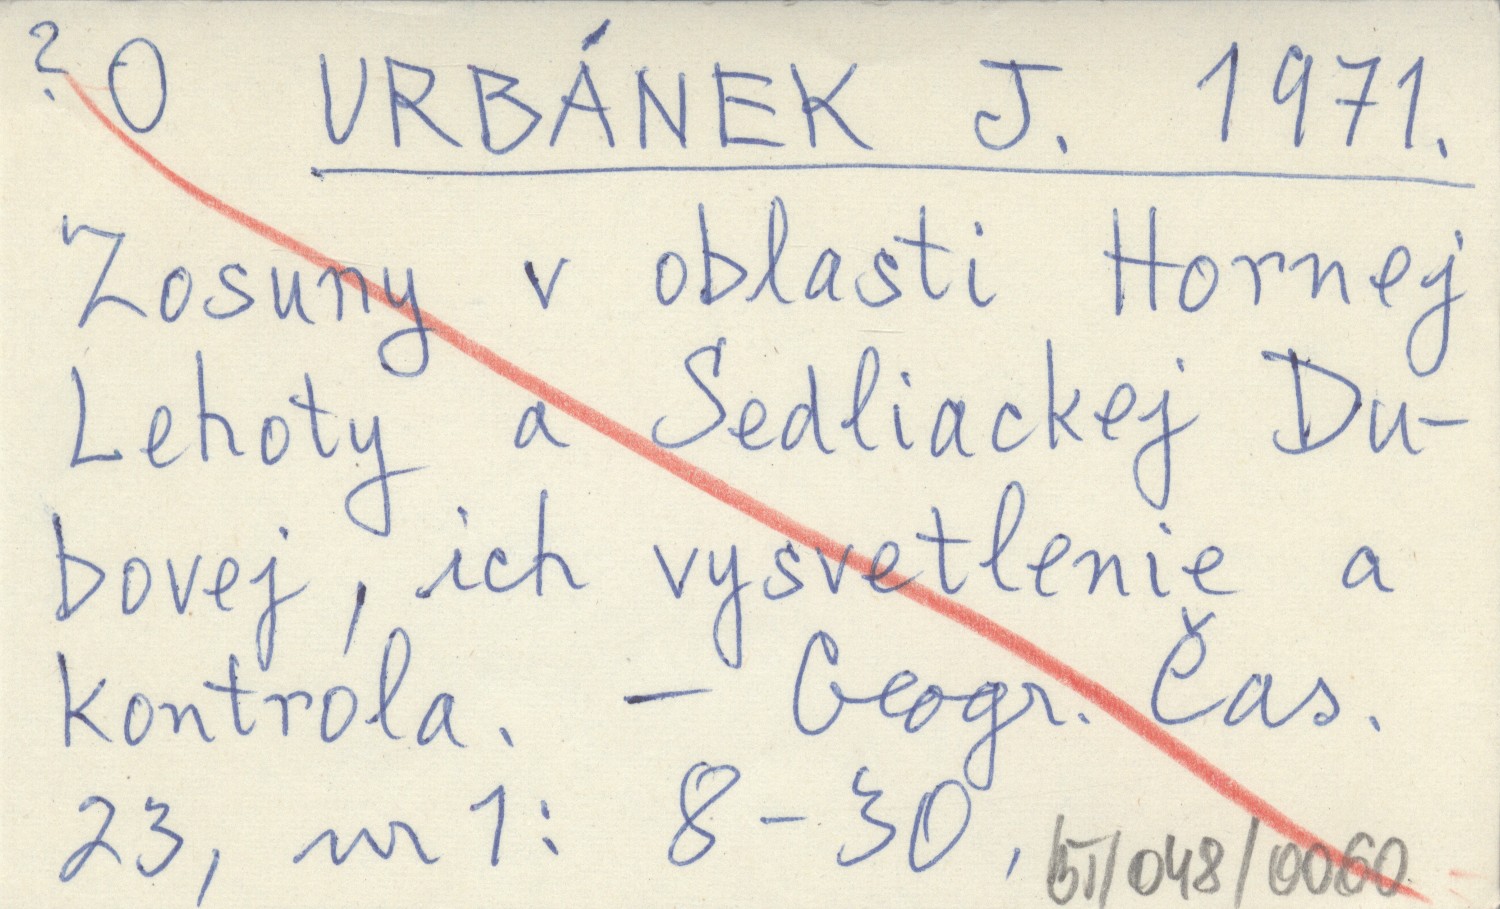 ? O URBÁNEK J. 1971.
Zosuny v oblasti Hornej
Lehoty a Sedliackej Du-
bovej, ich vysvetlenie a
kontróla. — Geogr. Čas.
23, nr 1: 8-30.
BI/048/0060